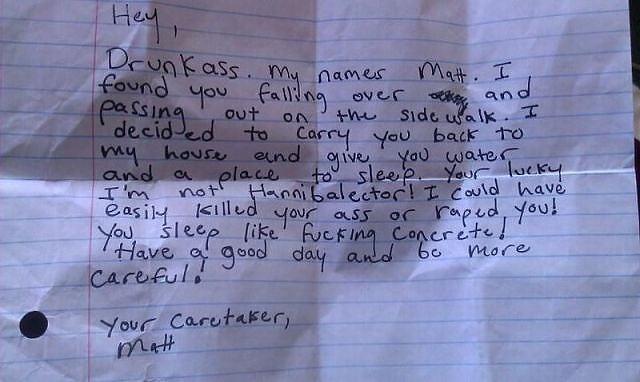 Hey,
Drunk ass. My names Matt. I
found you falling over and
passing out on the sidewalk. I
decided to carry you back to
my house and give you water
and a place to sleep. Your lucky
I'm not Hannibalector! I could have
easily killed your ass or raped you!
You sleep like fucking concrete!
Have a good day and be more
careful!
Your caretaker,
Matt